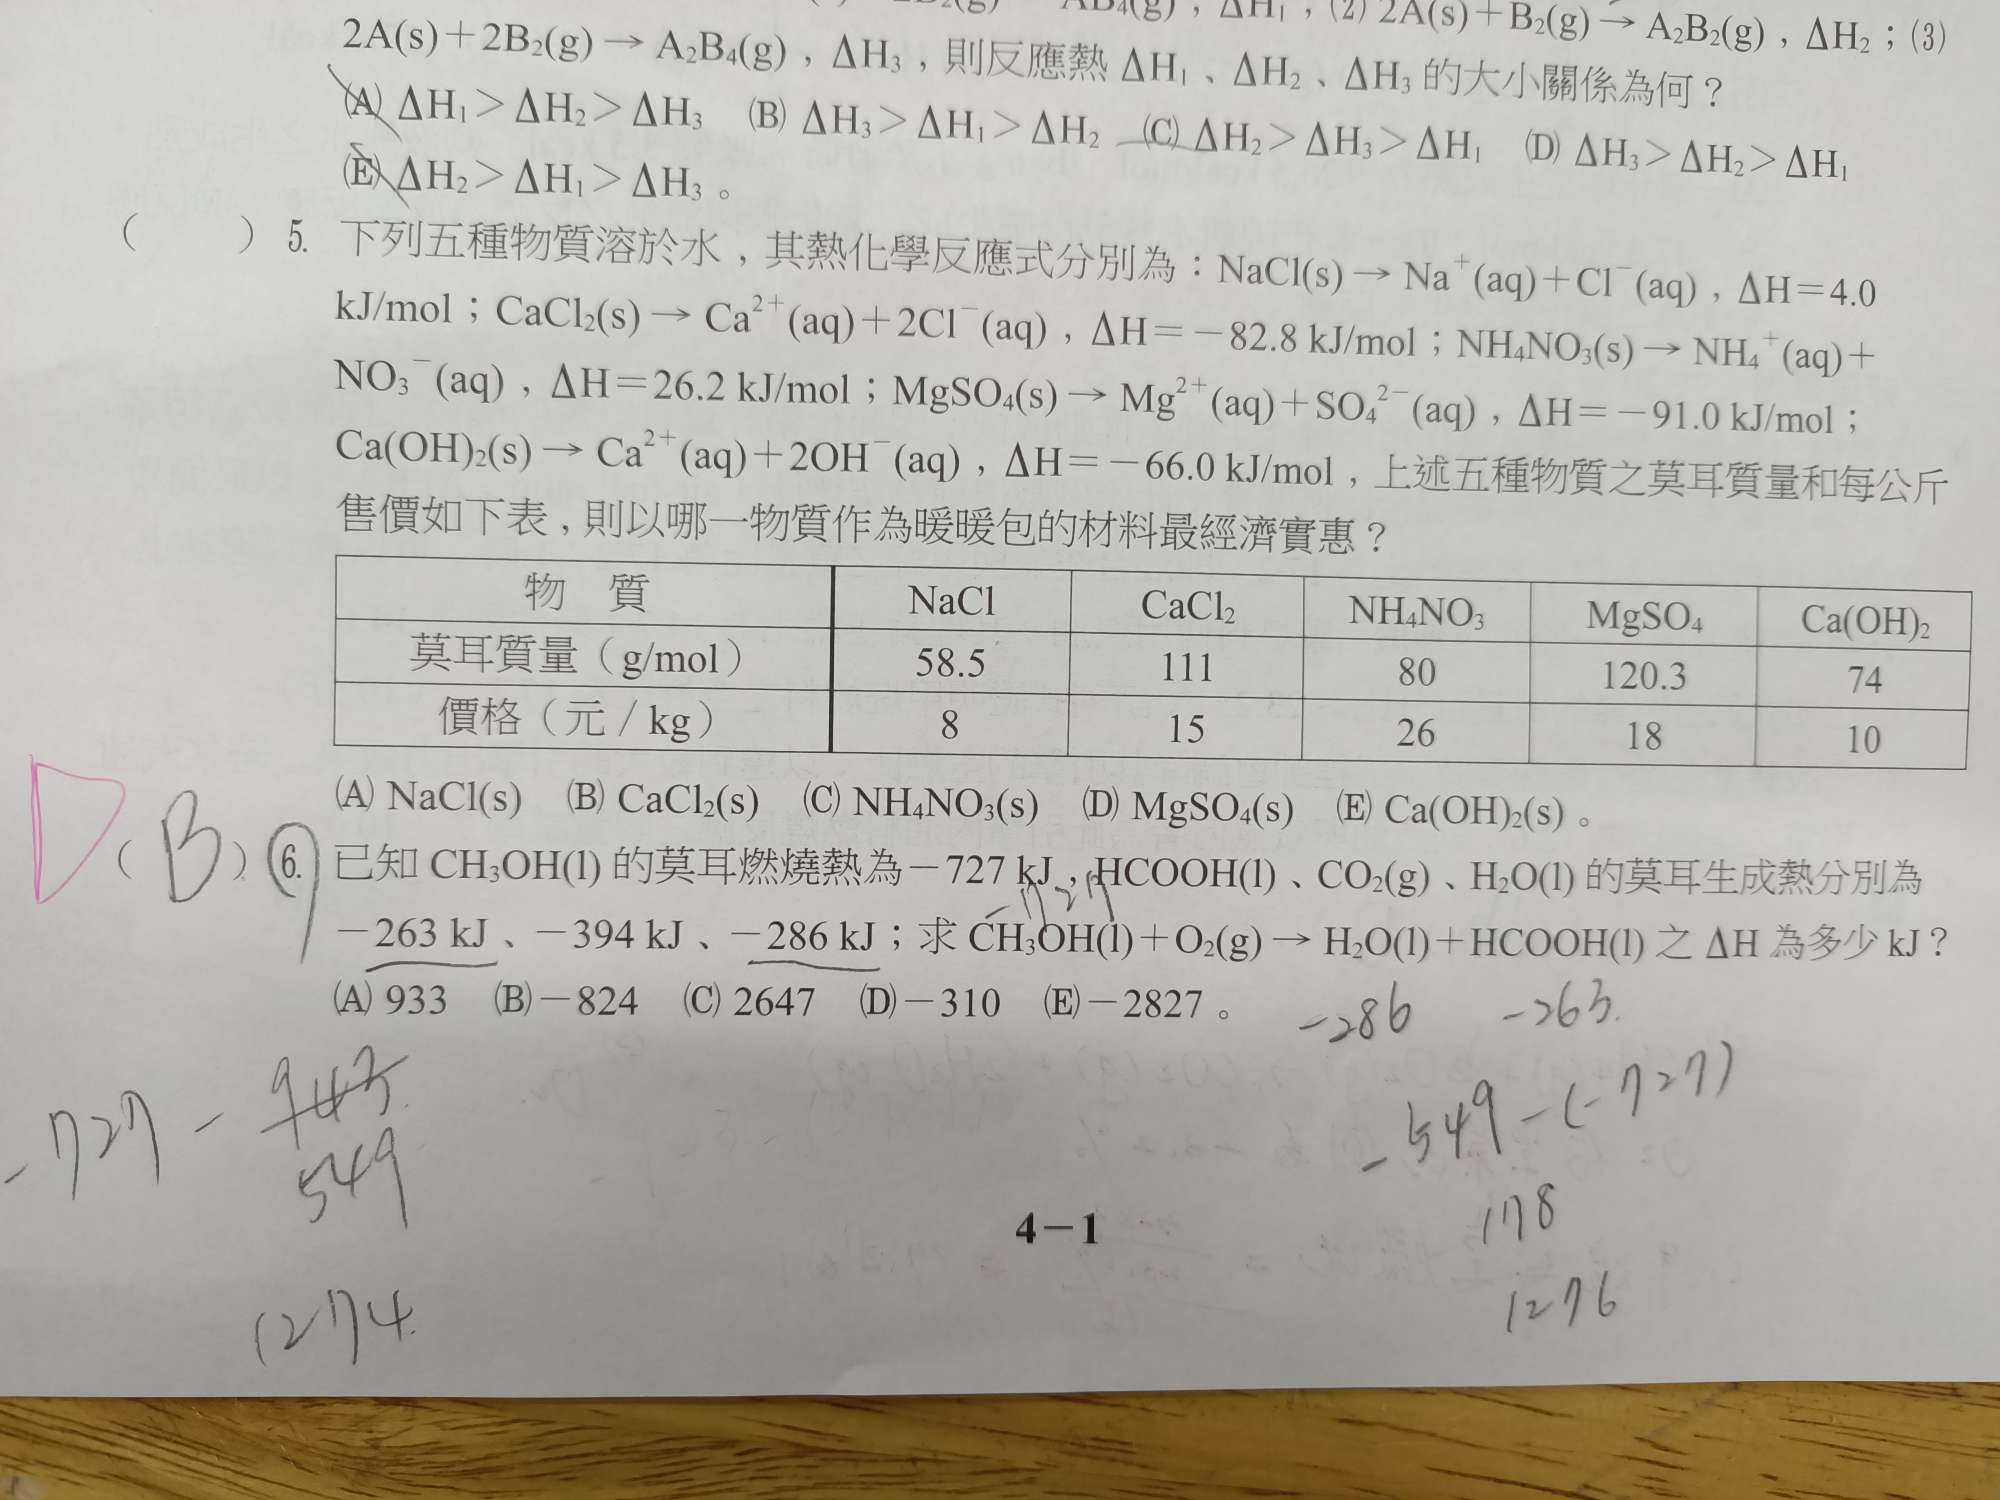 2A(s)+B₂(g)→A₂B₂(g),ΔH₂;(3)
2A(s)+2B₂(g)→A₂B₄(g),ΔH₃,則反應熱ΔH₁、ΔH₂、ΔH₃的大小關係為何?
(A)ΔH₁>ΔH₂>ΔH₃ (B)ΔH₃>ΔH₁>ΔH₂ (C)ΔH₂>ΔH₃>ΔH₁ (D)ΔH₃>ΔH₂>ΔH₁
(E)ΔH₂>ΔH₁>ΔH₃。
( ) 5. 下列五種物質溶於水,其熱化學反應式分別為:NaCl(s)→Na⁺(aq)+Cl⁻(aq),ΔH=4.0
kJ/mol;CaCl₂(s)→Ca²⁺(aq)+2Cl⁻(aq),ΔH=-82.8 kJ/mol;NH₄NO₃(s)→NH₄⁺(aq)+
NO₃⁻(aq),ΔH=26.2 kJ/mol;MgSO₄(s)→Mg²⁺(aq)+SO₄²⁻(aq),ΔH=-91.0 kJ/mol;
Ca(OH)₂(s)→Ca²⁺(aq)+2OH⁻(aq),ΔH=-66.0 kJ/mol,上述五種物質之莫耳質量和每公斤
售價如下表,則以哪一物質作為暖暖包的材料最經濟實惠?
物 質 NaCl CaCl₂ NH₄NO₃ MgSO₄ Ca(OH)₂
莫耳質量(g/mol) 58.5 111 80 120.3 74
價格(元/kg) 8 15 26 18 10
(A) NaCl(s) (B) CaCl₂(s) (C) NH₄NO₃(s) (D) MgSO₄(s) (E) Ca(OH)₂(s)。
D (B) 6. 已知 CH₃OH(l) 的莫耳燃燒熱為-727 kJ,HCOOH(l)、CO₂(g)、H₂O(l) 的莫耳生成熱分別為
-727
-263 kJ、-394 kJ、-286 kJ;求 CH₃OH(l)+O₂(g)→H₂O(l)+HCOOH(l) 之 ΔH 為多少 kJ?
(A) 933 (B)-824 (C) 2647 (D)-310 (E)-2827。
-286 -263.
-727 - 943
549
-549-(-727)
178
4-1
1274.
1276